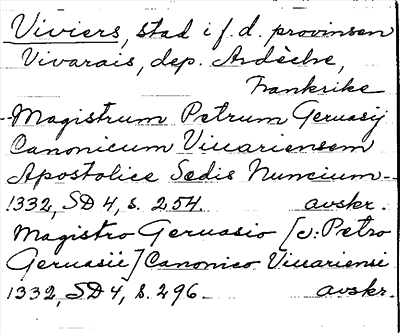 Viviers, stad i f.d. provinsen
Vivarais, dep. Ardèche,
Frankrike
Magistrum Petrum Geruasij
Canonicum Viuariensem
Apostolice Sedis Nuncium
1332, SD 4, s. 254. avskr.
Magistro Geruasio [ɔ: Petro
Geruasii] Canonico Viuariensi
1332, SD 4, s. 296 avskr.